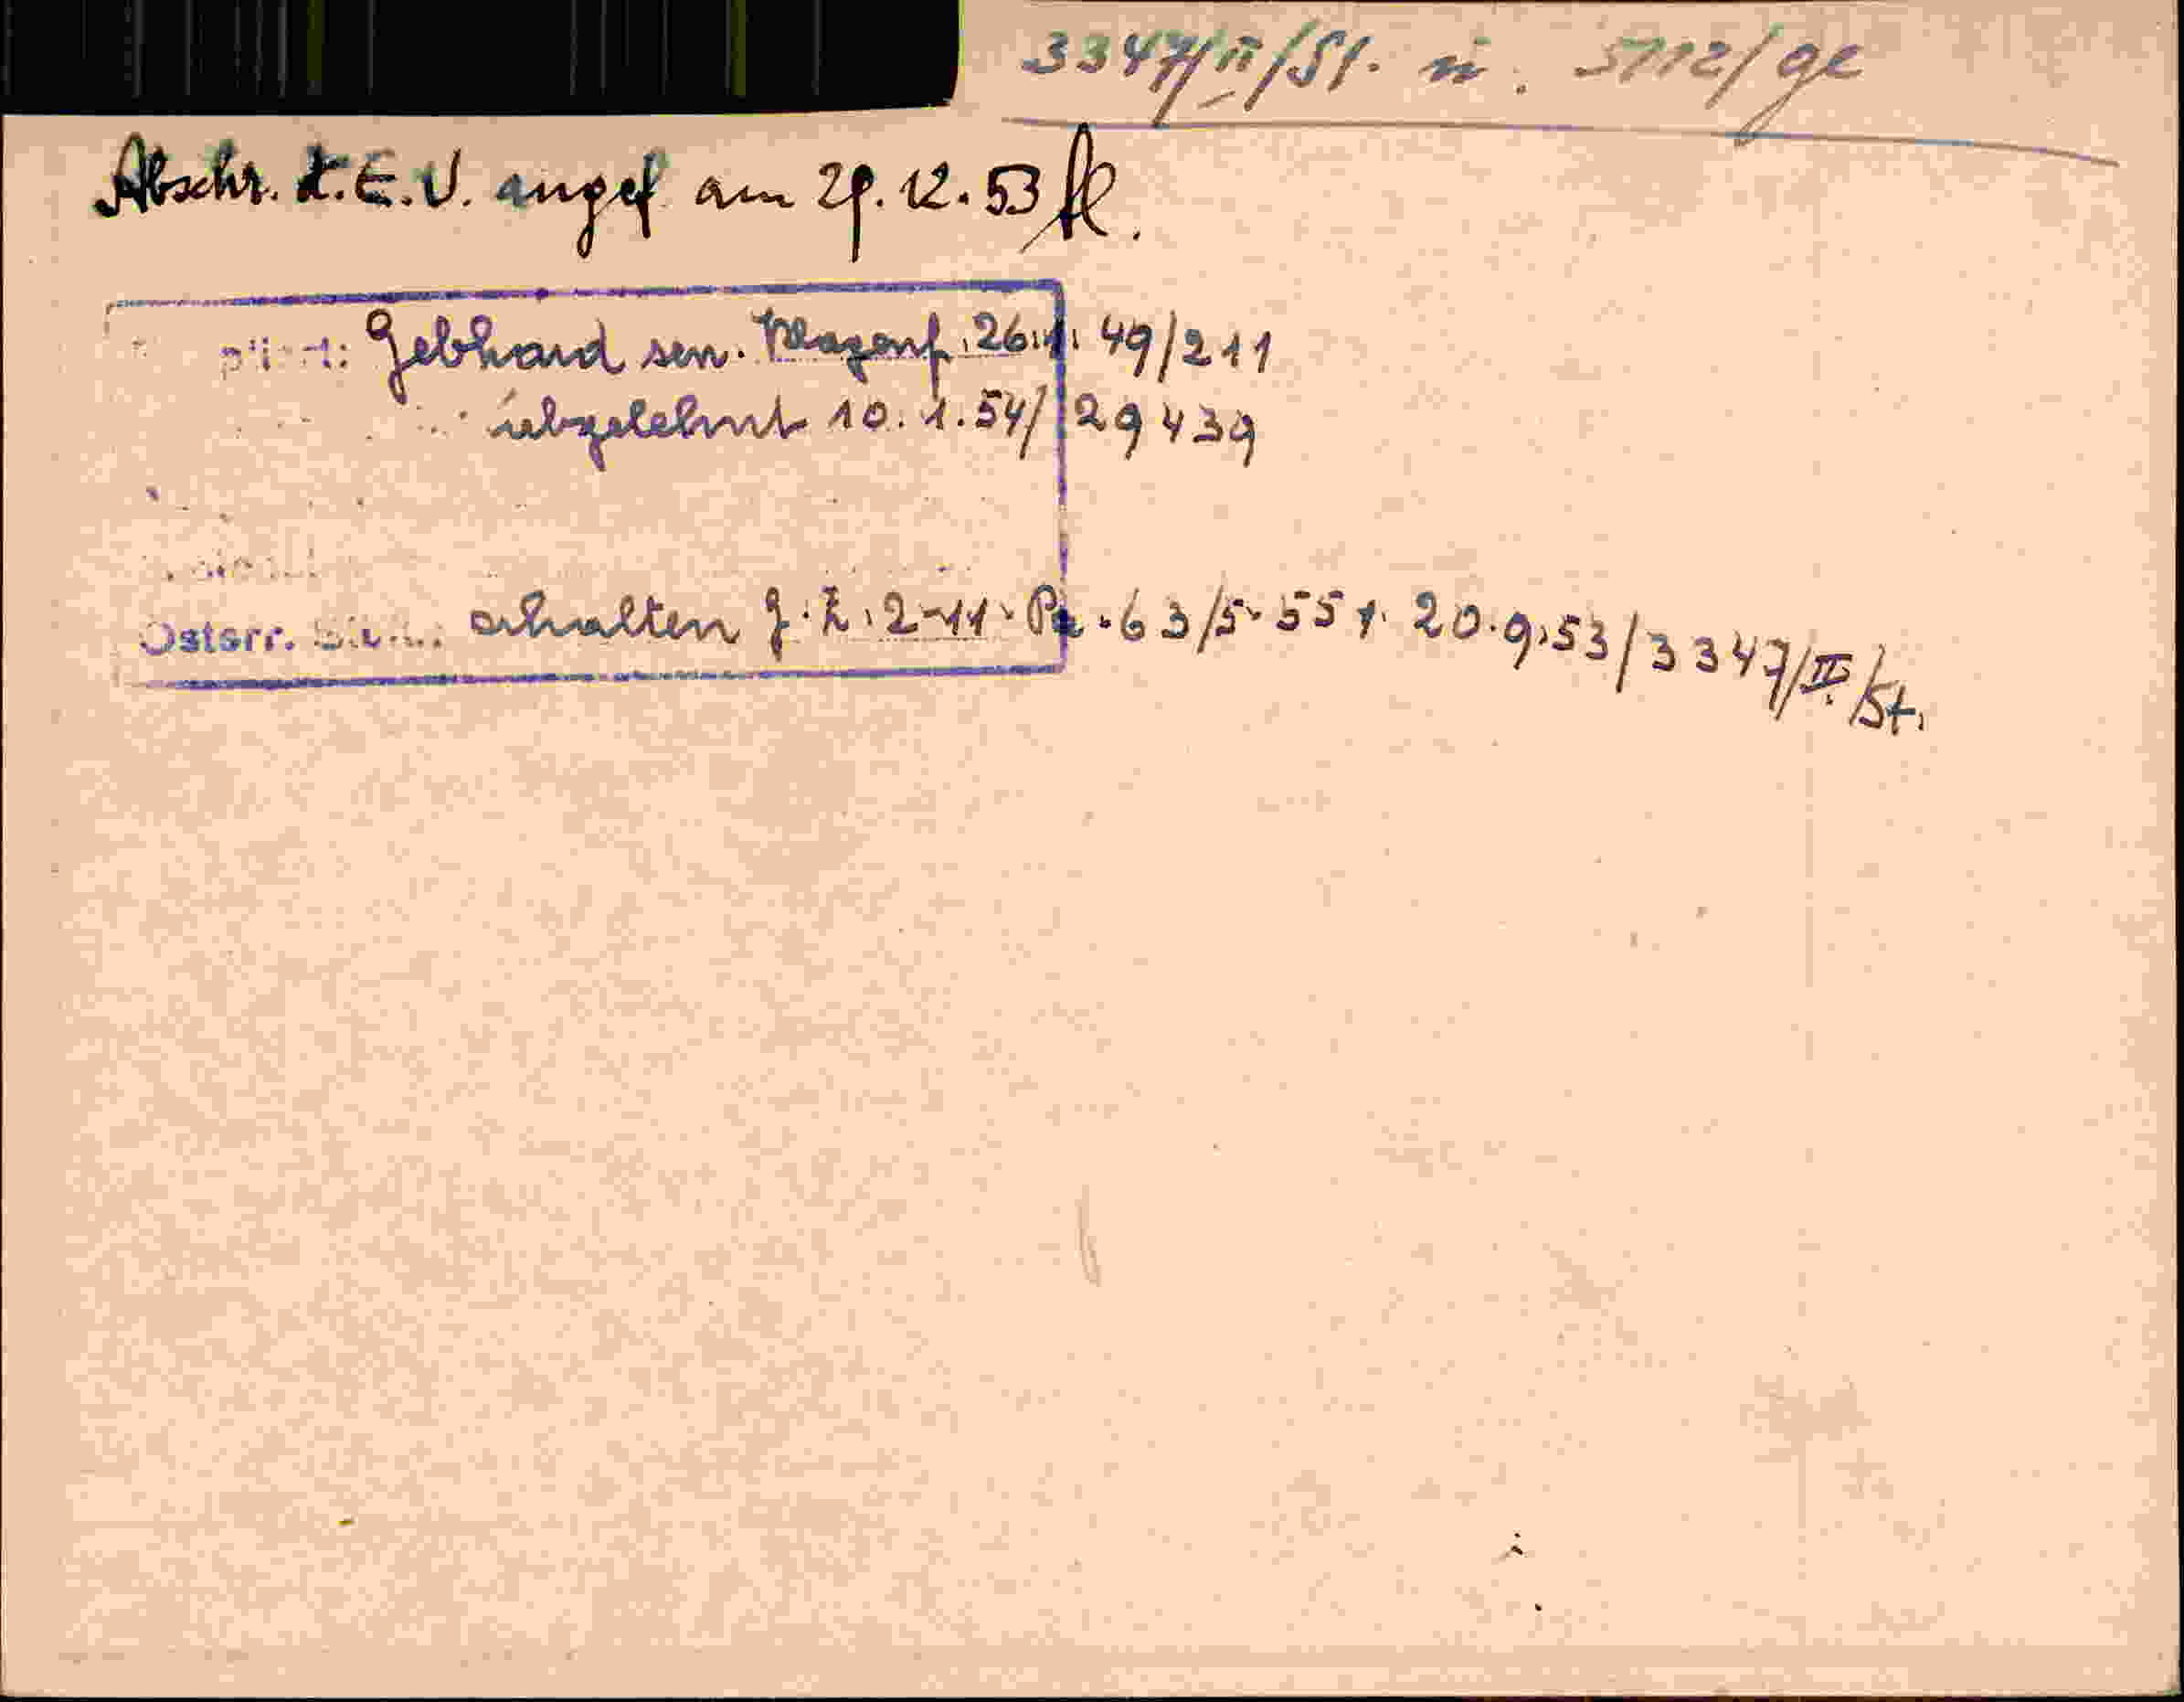 3347/II/St. u. 5712/ge
Abschr. d. E.V. angef am 29.12.53
Gebhard sen. Klagenf. 26.1.49/211
abgelehnt 10.1.54/29439
Österr. erhalten J.Z. 2-11-Pa-63/5-551. 20.9.53/3347/III/St.